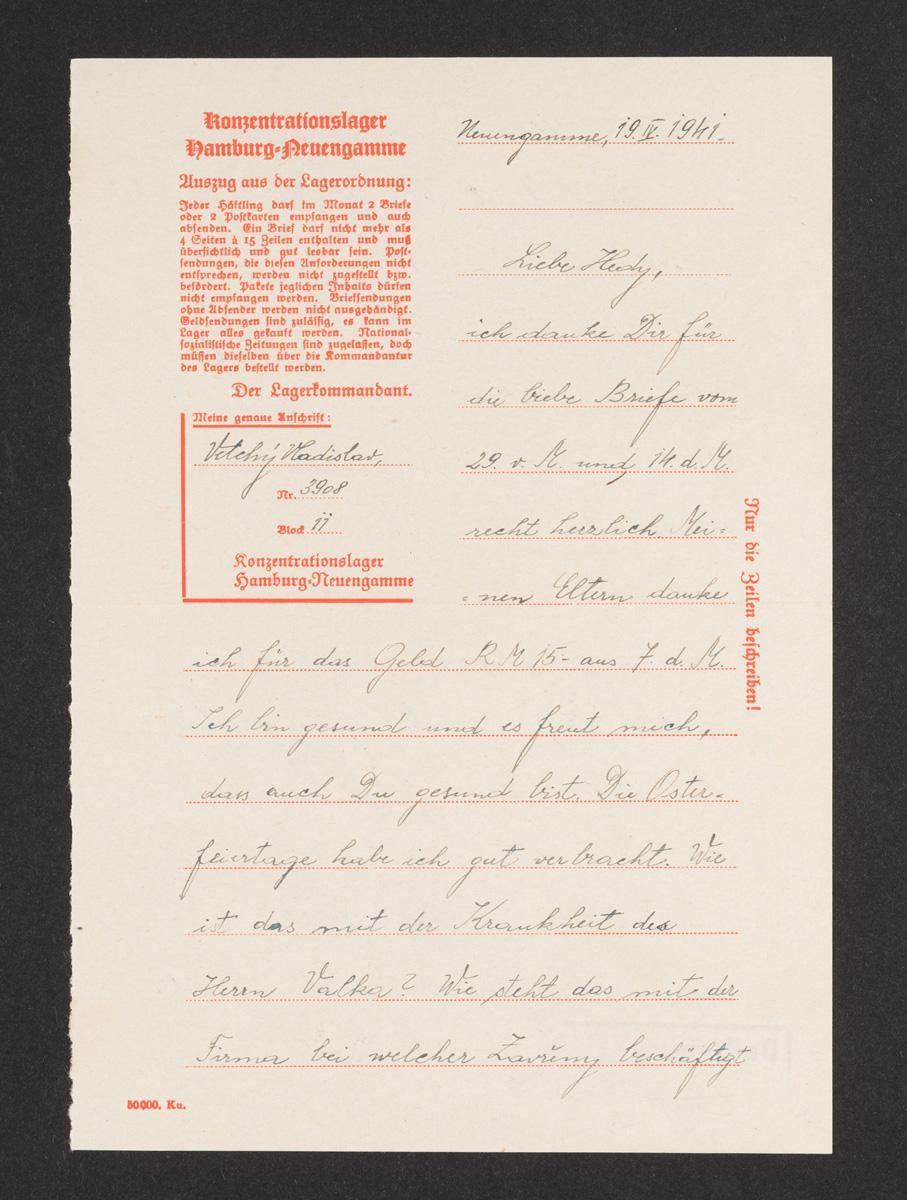 Konzentrationslager
Hamburg-Neuengamme
Auszug aus der Lagerordnung:
Jeder Häftling darf im Monat 2 Briefe
oder 2 Postkarten empfangen und auch
absenden. Ein Brief darf nicht mehr als
4 Seiten à 15 Zeilen enthalten und muß
übersichtlich und gut lesbar sein. Post-
sendungen, die diesen Anforderungen nicht
entsprechen, werden nicht zugestellt bzw.
befördert. Pakete jeglichen Inhalts dürfen
nicht empfangen werden. Briefsendungen
ohne Absender werden nicht ausgehändigt.
Geldsendungen sind zulässig, es kann im
Lager alles gekauft werden. National-
sozialistische Zeitungen sind zugelassen, doch
müssen dieselben über die Kommandantur
des Lagers bestellt werden.
Der Lagerkommandant.
Meine genaue Anschrift:
Vetchý Vladislav,
Nr. 3908
Block 11
Konzentrationslager
Hamburg-Neuengamme
Neuengamme, 19. IV. 1941.
Liebe Hedy,
ich danke Dir für
die liebe Briefe vom
29. v. M. und 14. d. M.
recht herzlich. Mei=
=nen Eltern danke
ich für das Geld RM 15- aus 7. d. M.
Ich bin gesund und es freut mich,
dass auch Du gesund bist. Die Oster-
feiertage habe ich gut verbracht. Wie
ist das mit der Krankheit des
Herrn Valka? Wie steht das mit der
Firma bei welcher Zavřený beschäftigt
Nur die Zeilen beschreiben!
50000. Ku.